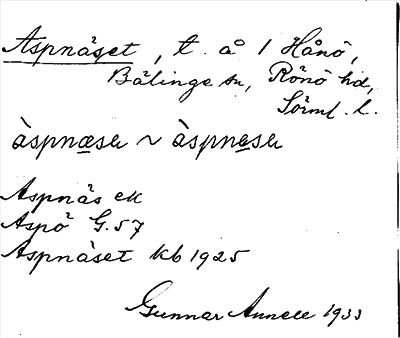 Aspnäset, t. å 1 Hånö,
Bälinge sn, Rönö hd,
Sörml. l.
àspnæsər ~ àspnesər
Aspnäs ek
Aspö G.57
Aspnäset kb 1925
Gunnar Annell 1933